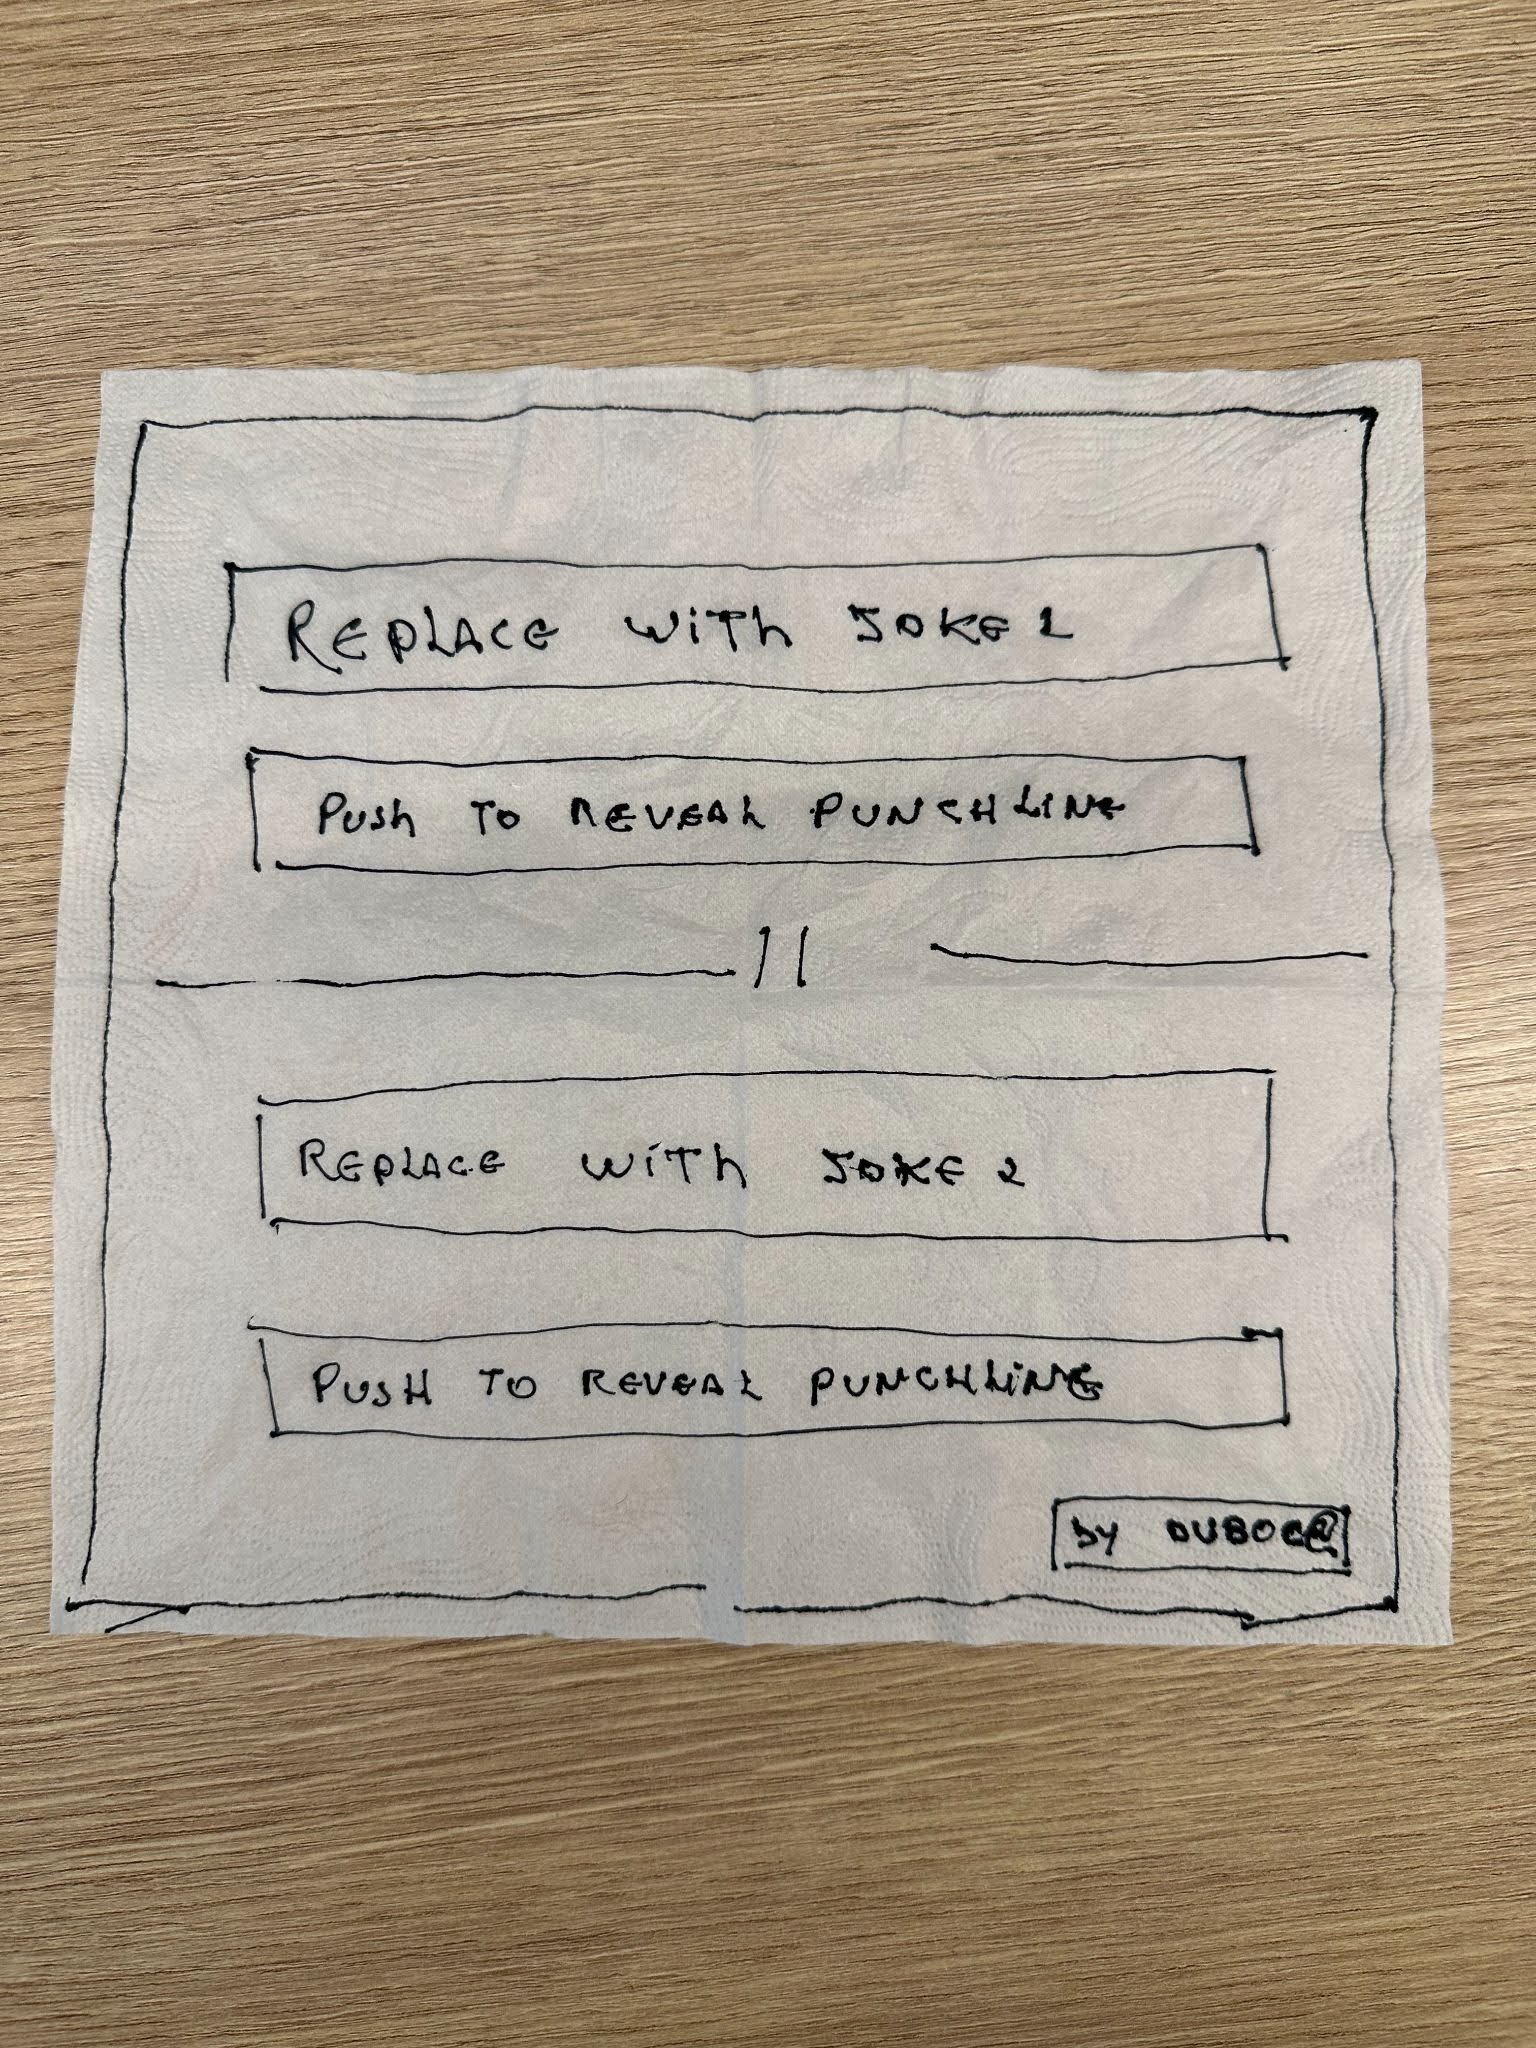 REPLACE WITH JOKE 1
PUSh TO REVEAL PUNCHLINE
//
REPLACE WITH JOKE 2
PUSH TO REVEAL PUNCHLINE
by DUBOC@